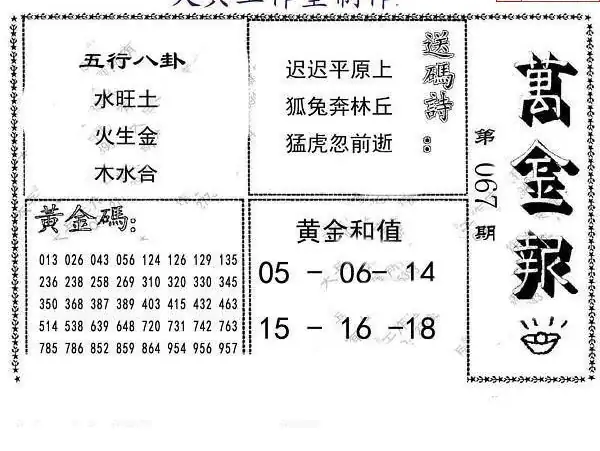 五行八卦
水旺土
火生金
木水合
送碼詩：
迟迟平原上
狐兔奔林丘
猛虎忽前逝
萬金報
第067期
黃金碼：
013 026 043 056 124 126 129 135
236 238 258 269 310 320 330 345
350 368 387 389 403 415 432 463
514 538 639 648 720 731 742 763
785 786 852 859 864 954 956 957
黄金和值
05 - 06- 14
15 - 16 -18